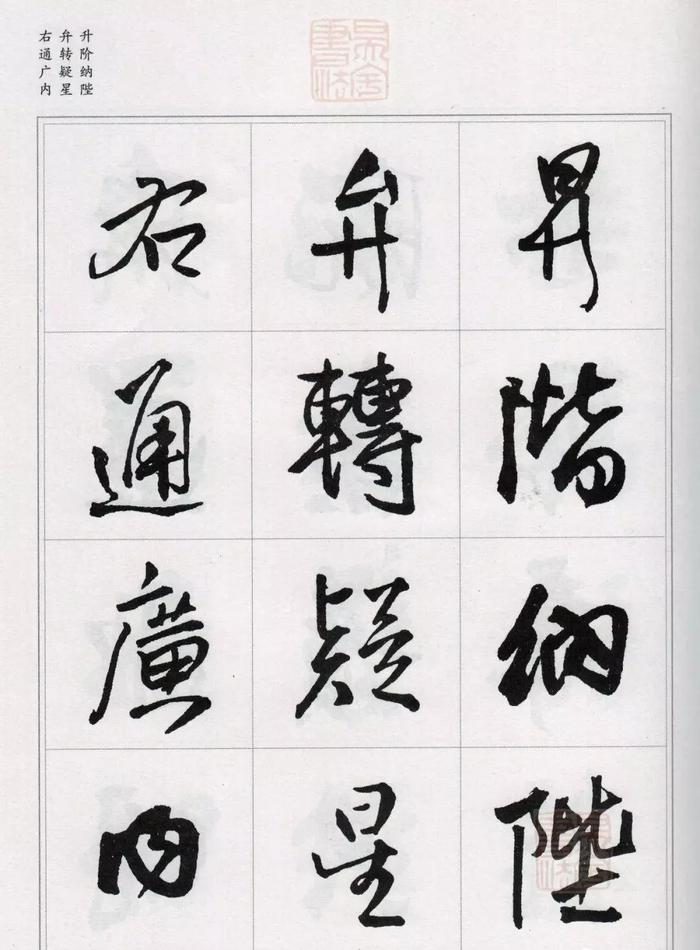 升阶纳陛
弁转疑星
右通广内
昇階納陛
弁轉疑星
右通廣内